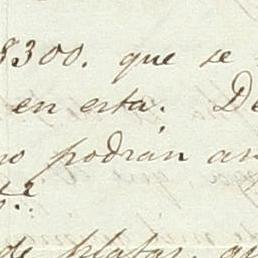 8300. que se
en esta. De
no podrán an
de platas. qu